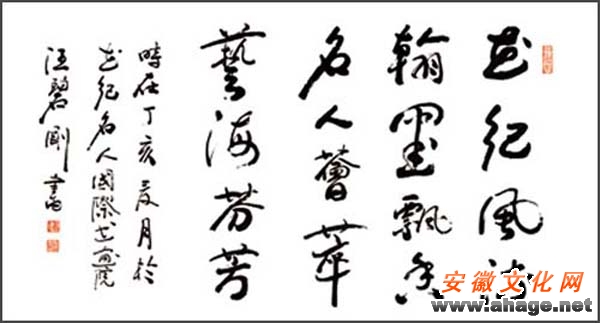 世纪風
翰墨飘香
名人薈萃
藝海芬芳
時在丁亥月於
世纪名人國際书画院
汪碧剛
安徽文化网
www.ahage.net